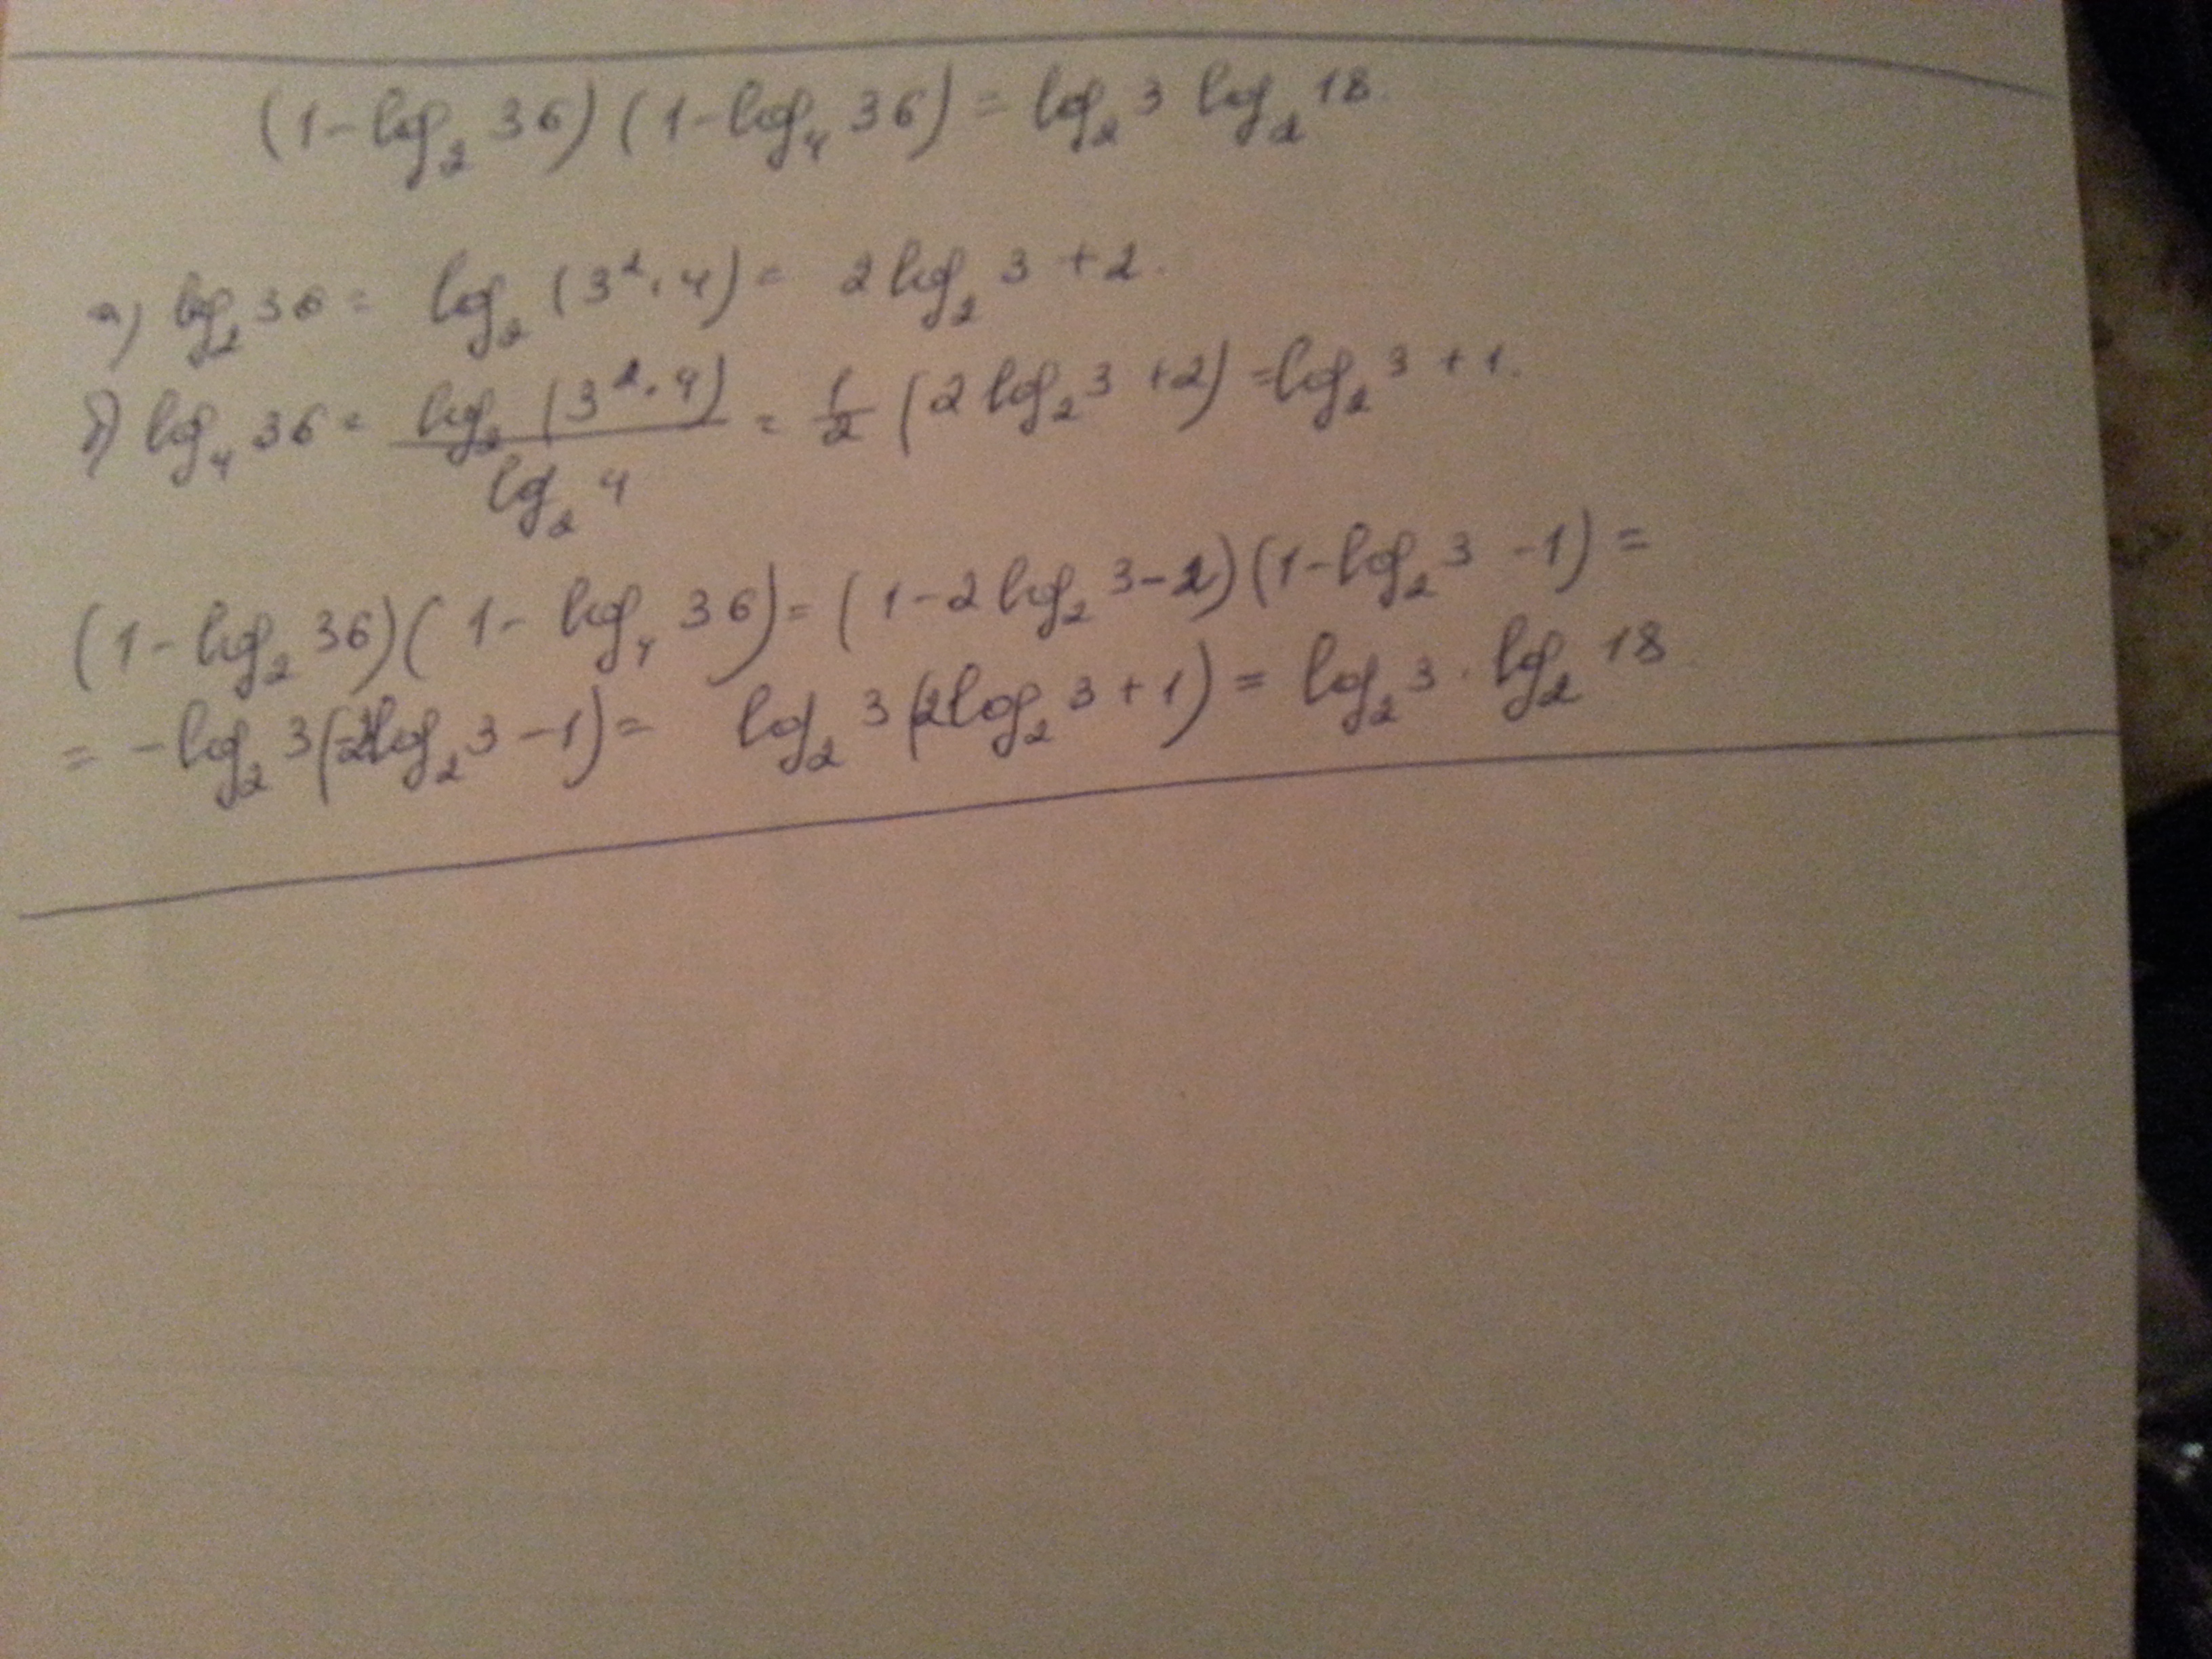 (1-log₂ 36)(1-log₄ 36) = log₂ 3 log₂ 18.
а) log₂ 36 = log₂ (3²·4) = 2 log₂ 3 + 2.
б) log₄ 36 = log₂ (3²·4) / log₂ 4 = 1/2 (2 log₂ 3 + 2) = log₂ 3 + 1.
(1-log₂ 36)(1-log₄ 36) = (1-2 log₂ 3-2)(1-log₂ 3 -1) =
= -log₂ 3(-2log₂ 3 -1) = log₂ 3(2log₂ 3 + 1) = log₂ 3 · log₂ 18